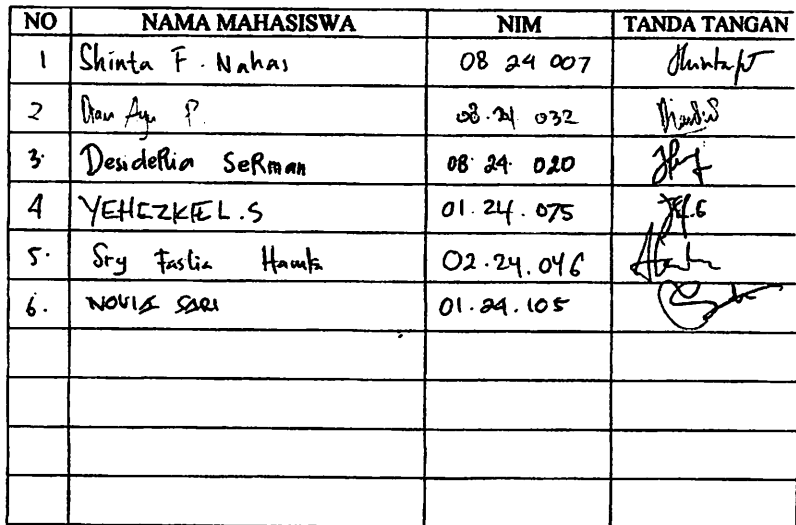 NO NAMA MAHASISWA NIM TANDA TANGAN
1 Shinta F. Nahas 08 24 007
2 Dian Ayu P. 08.24 032
3. Desideria Serman 08 24. 020
4 YEHEZKIEL.S 01.24.075
5. Sry Hamka 02.24.046
6. NOVIA SARI 01.24.105